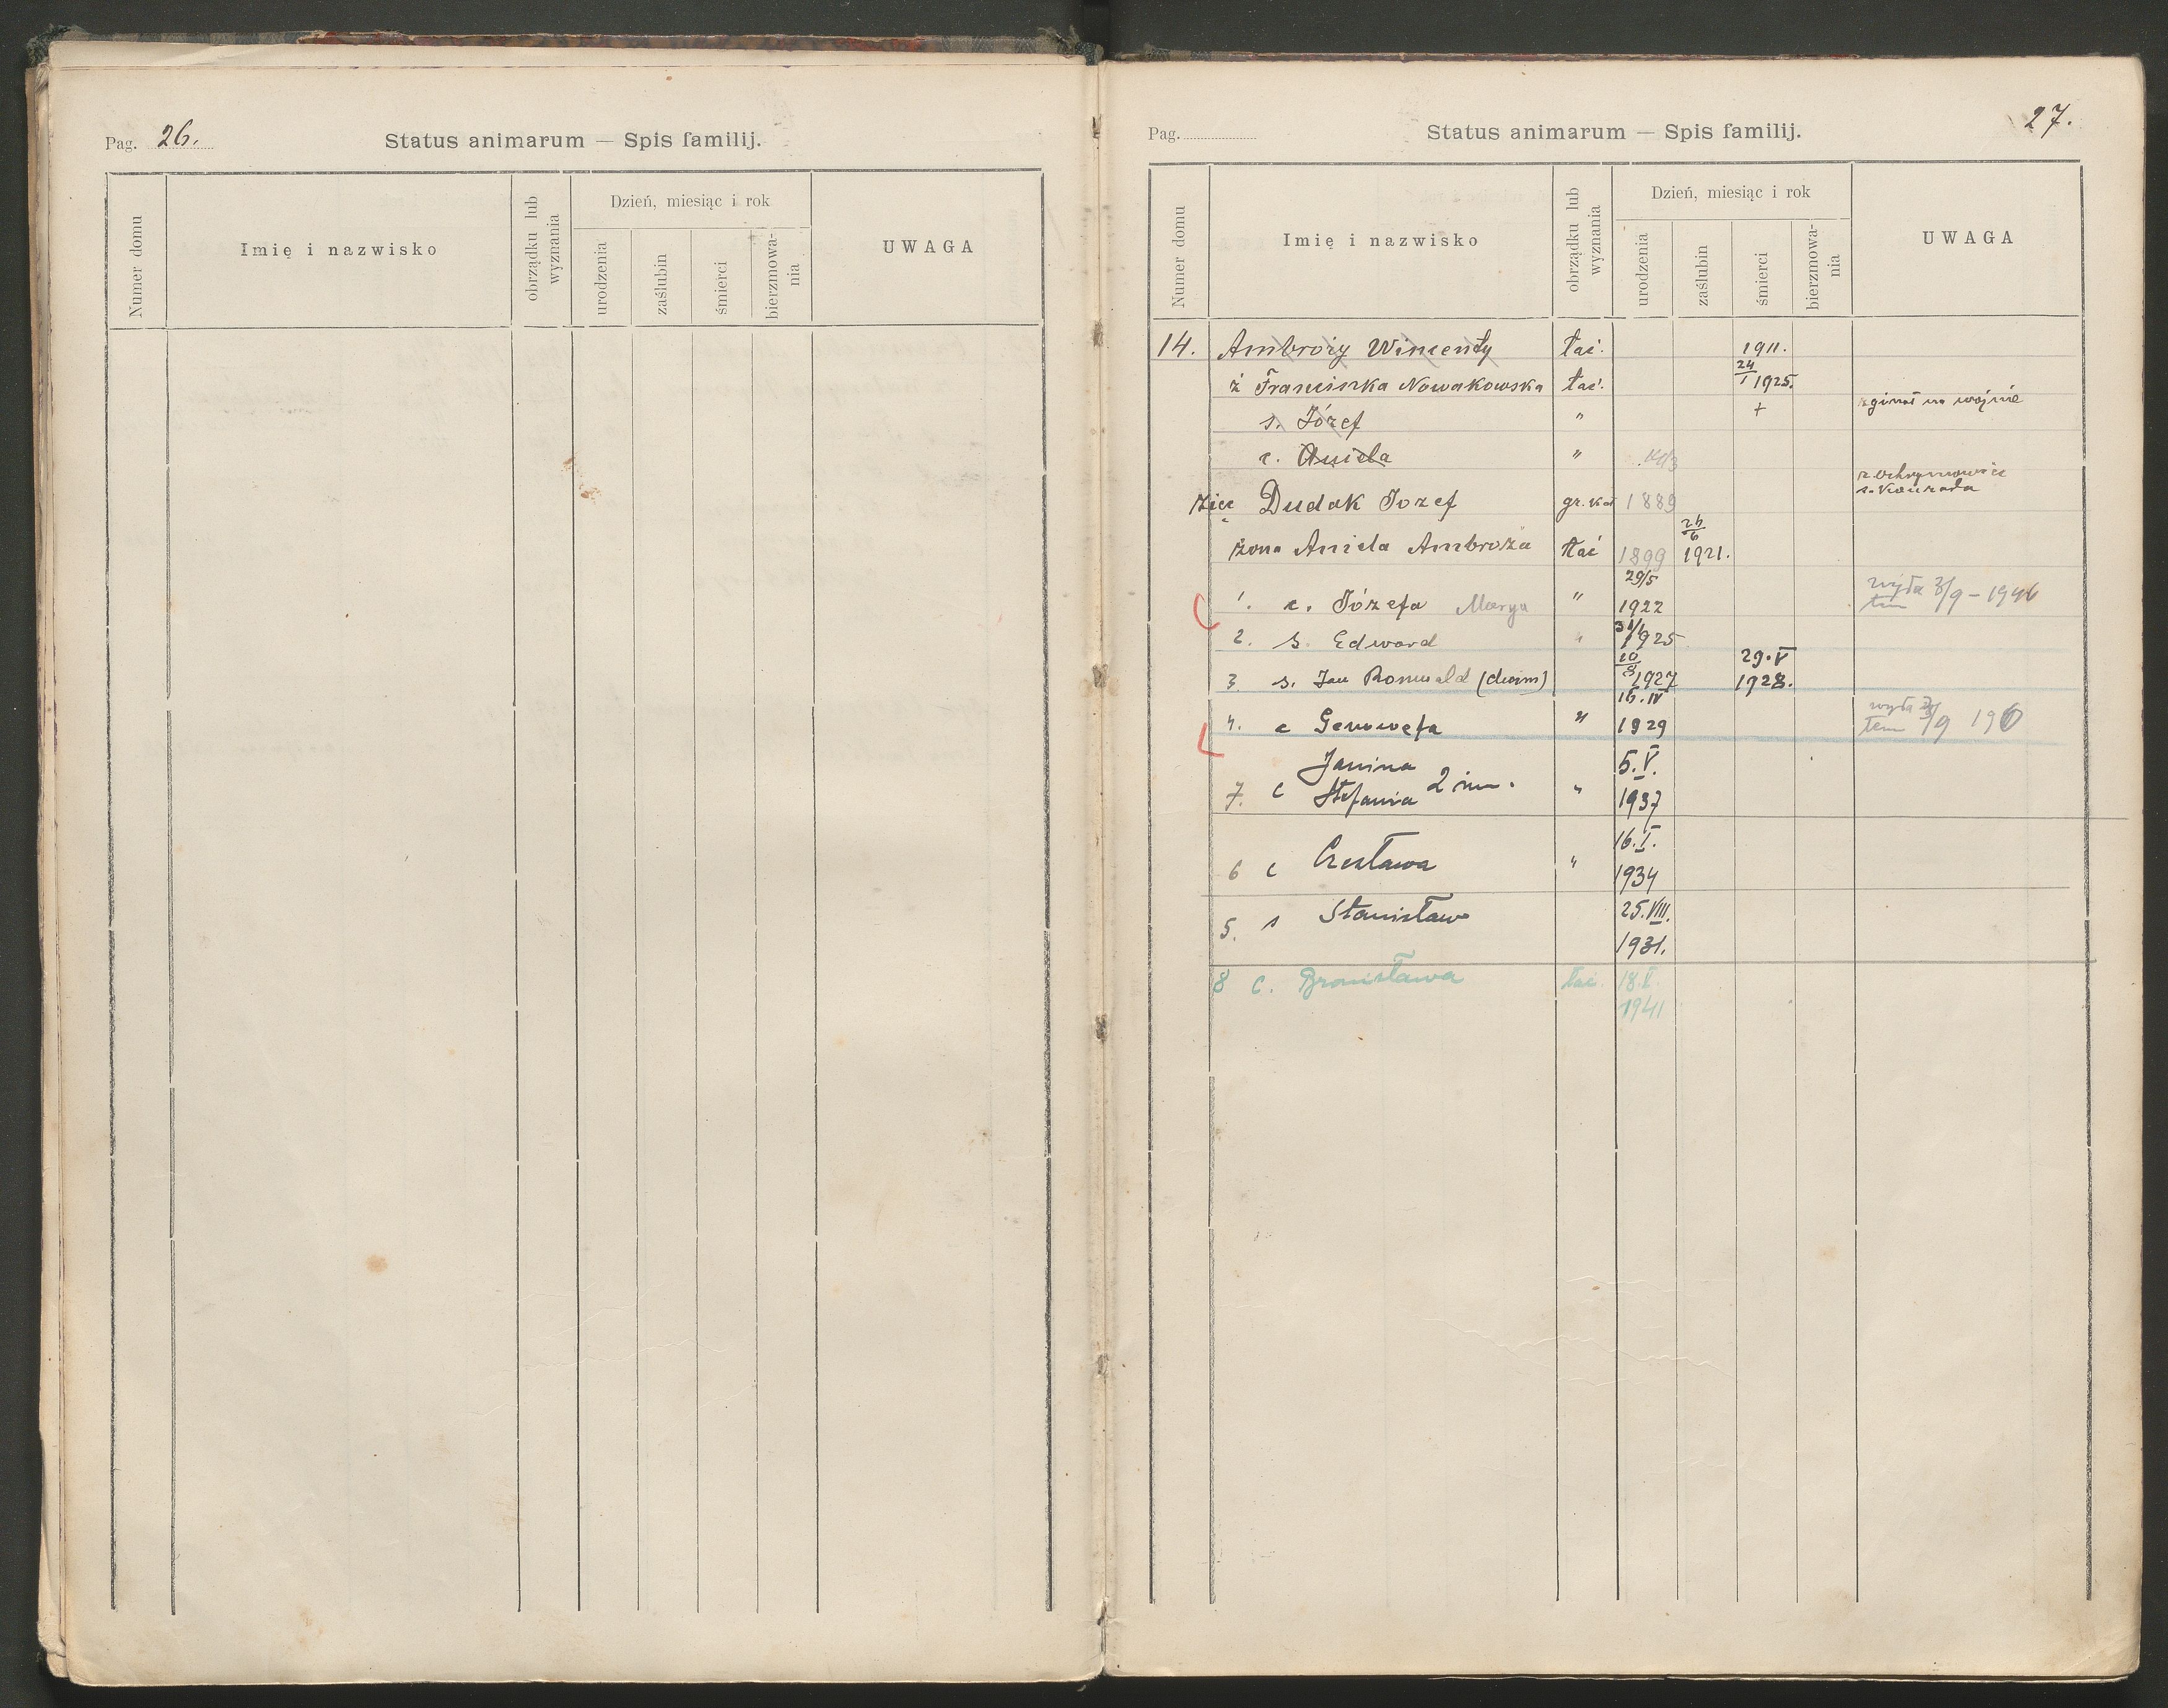 Pag. 26.
Status animarum — Spis familij.
Numer domu
Imię i nazwisko
obrządku lub wyznania
Dzień, miesiąc i rok
urodzenia
zaślubin
śmierci
bierzmowa-
nia
UWAGA
Pag.
Status animarum — Spis familij.
27.
Numer domu
Imię i nazwisko
obrządku lub wyznania
Dzień, miesiąc i rok
urodzenia
zaślubin
śmierci
bierzmowa-
nia
UWAGA
14. Ambroży Wincenty łać. 1911.
ż Franciszka Nowakowska łać. 24/I 1925.
s. Józef " + zginął na wojnie
c. Aniela "
zięć Dudak Jozef gr. kat 1889 s. Konrada
żona Aniela Ambroża łać 1899 24/6 1921.
1. c. Józefa Marya " 29/5 1922 wyjła 3/9 - 1946
2. s. Edward " 31/1 1925
3 s. Jan Romuald (dwim) 20/8 1927 29.V 1928.
4. c Genowefa " 16.IV 1929 tem 3/9
7. c Janina Stefania 2 im. " 5.V. 1937
6 c Czesława " 16.I. 1934
5. s Stanisław 25.VIII. 1931.
8 c. Bronisława łać. 18.V. 1941